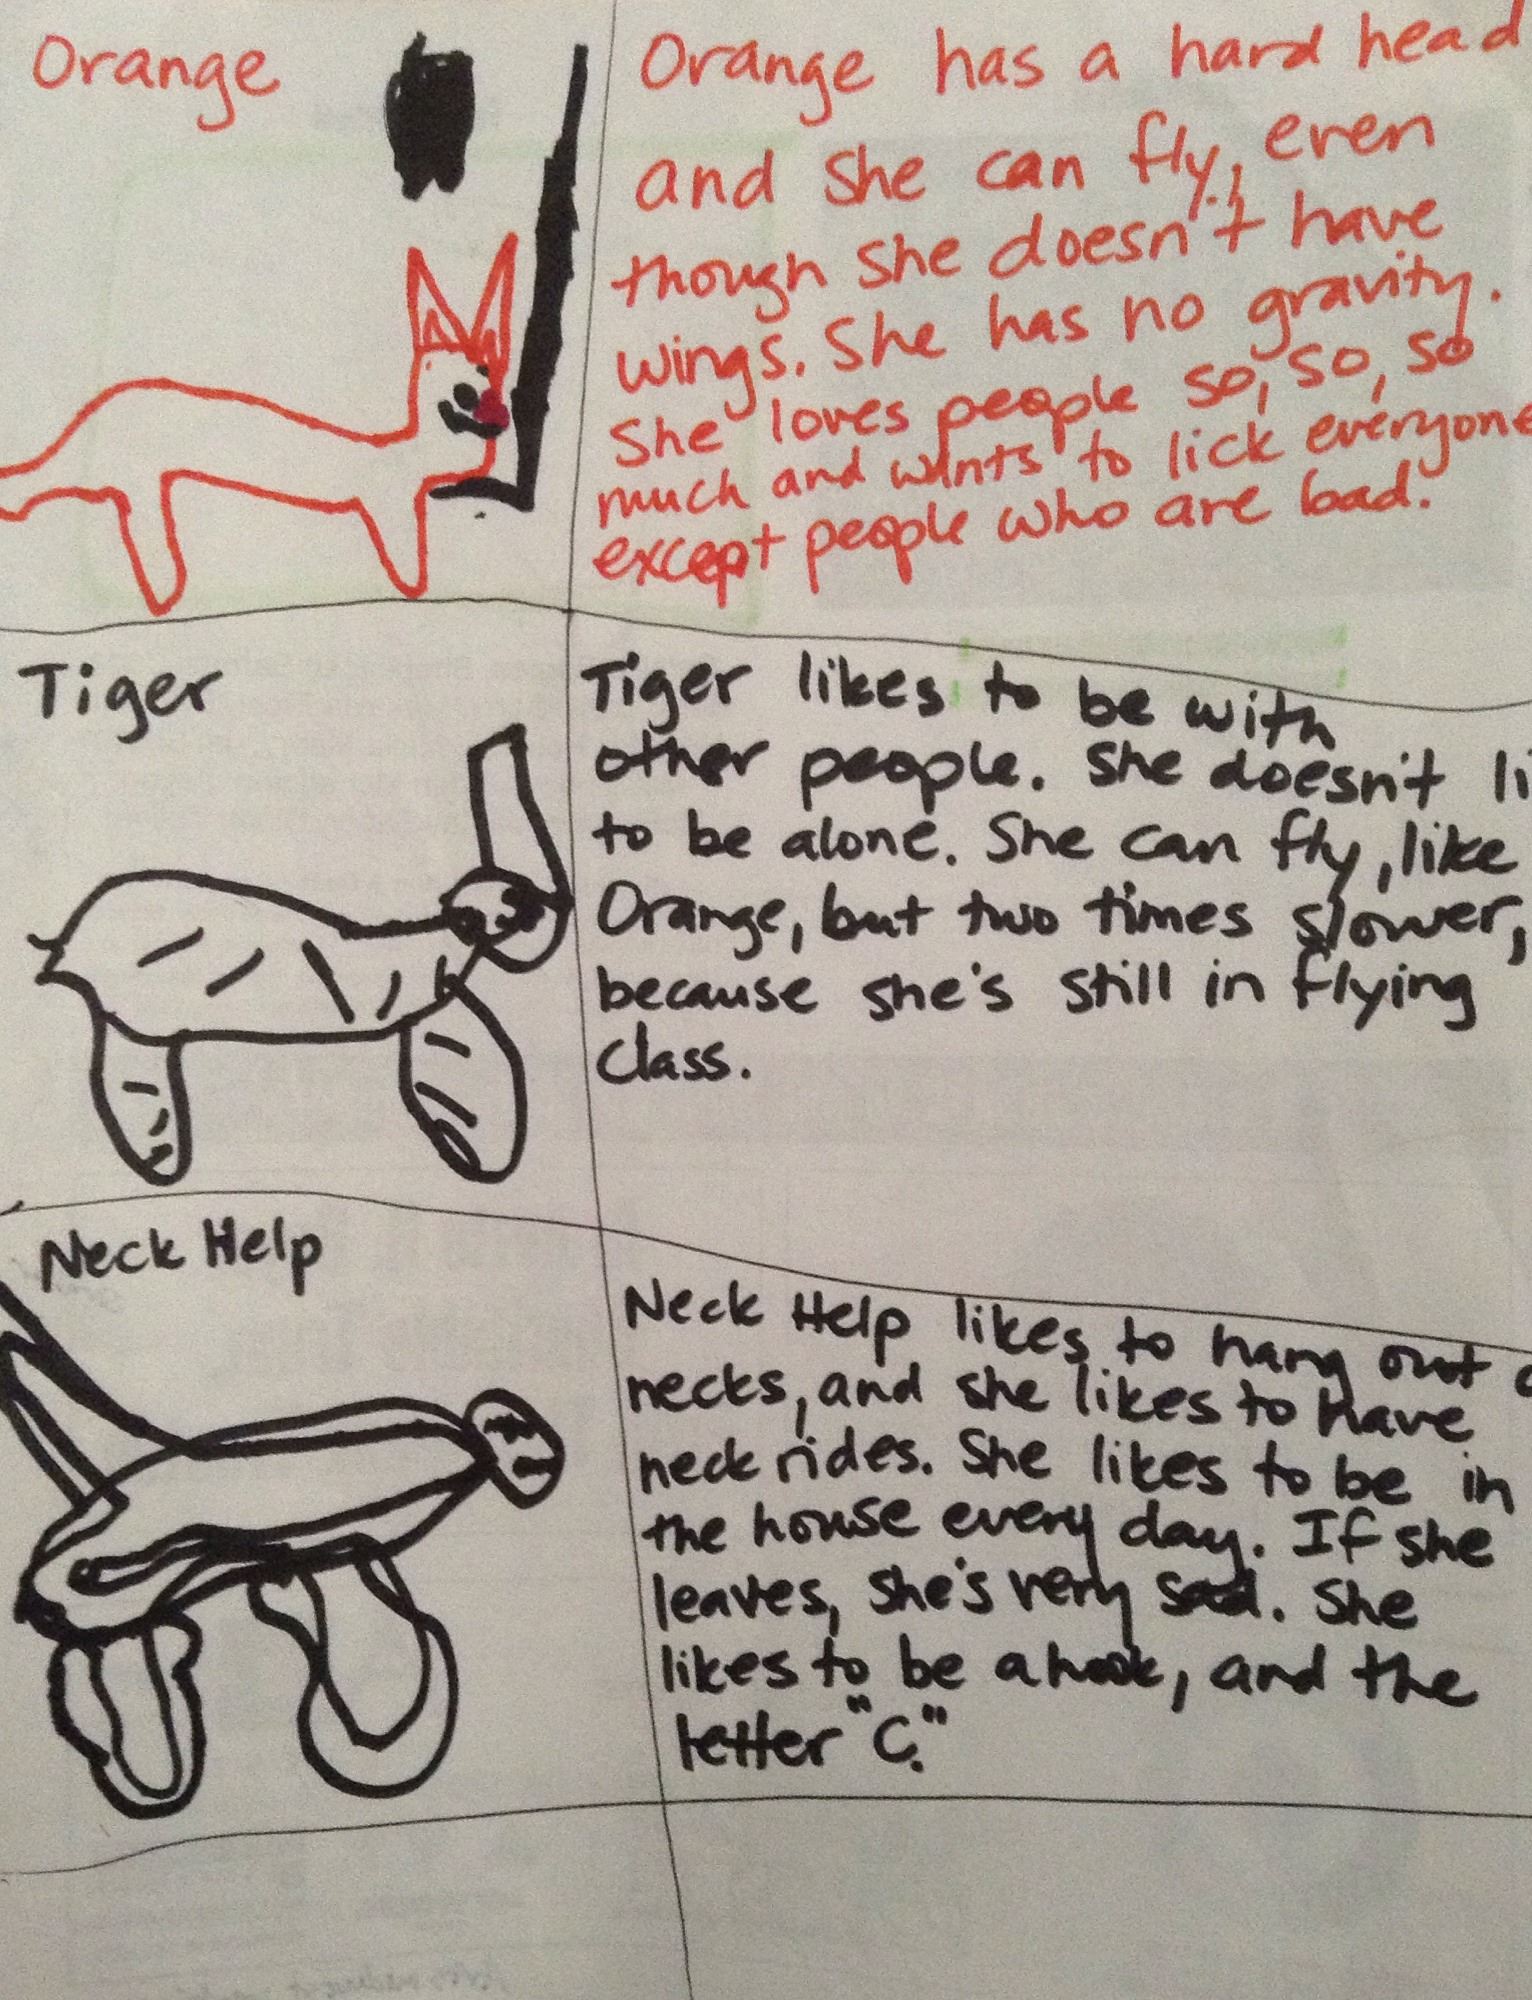 Orange
Orange has a hard head
and she can fly, even
though she doesn't have
wings. She has no gravity.
She loves people so, so, so
much and wants to lick everyone
except people who are bad.
Tiger
Tiger likes to be with
other people. She doesn't li
to be alone. She can fly, like
Orange, but two times slower,
because she's still in flying
class.
Neck Help
Neck Help likes to hang out
necks, and she likes to have
neck rides. She likes to be in
the house every day. If she
leaves, she's very sad. She
likes to be a hook, and the
letter "C."